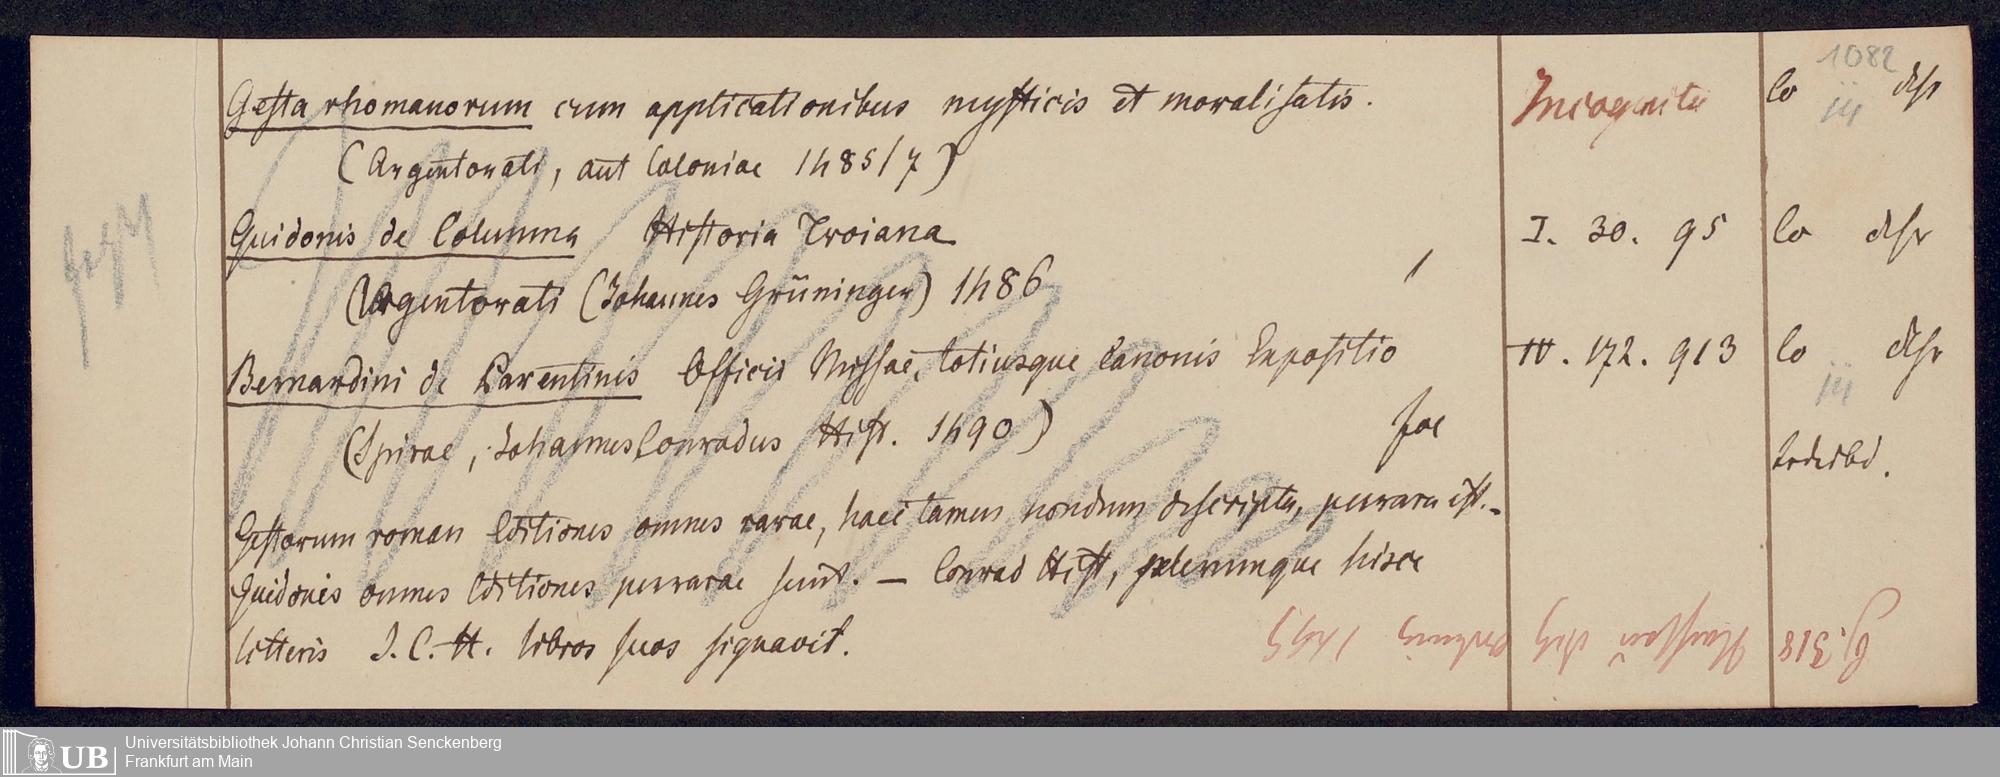 1082
Gesta rhomanorum cum applicationibus mysticis et moralisatis. Incognita Co iii
(Argentorati, aut Coloniae 1485/7)
Guidonis de Columna Historia Troiana I. 30. 95 Co
(Argentorati (Johannes Grüninger) 1486
Bernardini de Parentinis Officii Missae, totiusque Canonis Expositio IV. 172. 913 Co iii
(Spirae, Johannes Conradus Hist. 1490)
Gestorum roman Editiones omnes rarae, haec tamen nondum descripta, perrara est. -
Guidonis omnes Editiones perrarae sunt. - Conrad Hist, plerumque hisce
litteris J. C. H. libros suos signavit.
G. 318
Universitätsbibliothek Johann Christian Senckenberg
UB Frankfurt am Main